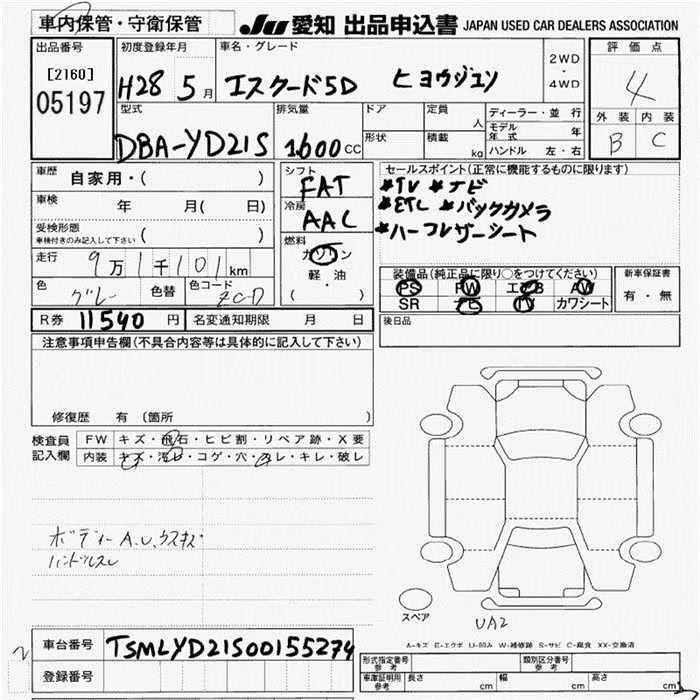 車内保管・守衛保管 JU 愛知 出品申込書 JAPAN USED CAR DEALERS ASSOCIATION
出品番号 [2160] 05197
初度登録年月 H28 5月
車名・グレード エスクード5D ヒョウジュン
2WD・4WD
評価点 4
外装 内装
B C
型式 DBA-YD21S
排気量 1600cc
ドア
形状
定員 人
積載 kg
ディーラー・並行
モデル年式 年
ハンドル 左・右
車歴 自家用・( )
車検 年 月( 日)
受検形態 車検付きのみ記入して下さい ( )
走行 9万1千101km
色 グレー 色替 色コード ZCD
シフト FAT
冷房 AAC
燃料 ガソリン
軽・油
( ・ )
セールスポイント(正常に機能するものに限ります)
★TV ★ナビ
★ETC ★バックカメラ
★ハーフレザーシート
装備品(純正品に限り○をつけてください)
PS PW エアB AW
SR ナビ TV カワシート
新車保証書
有・無
R券 11540円 名変通知期限 月 日
後日品
注意事項申告欄(不具合内容等は具体的に記入して下さい)
修復歴 有 〔箇所 〕
検査員記入欄
FW キズ・飛石・ヒビ割・リペア跡・X要
内装 キズ・汚レ・コゲ・穴・スレ・キレ・破レ
ボディーA.U.ウスキズ
ハンドルスレ
スペア
UA2
A-キズ E-エクボ U-凹み W-補修跡 S-サビ C-腐食 XX-交換済
2
車台番号 TSMLYD21S00155274
登録番号
形式指定番号 参考
類別区分番号 参考
車庫証明用 参考 長さ cm 幅 cm 高さ cm